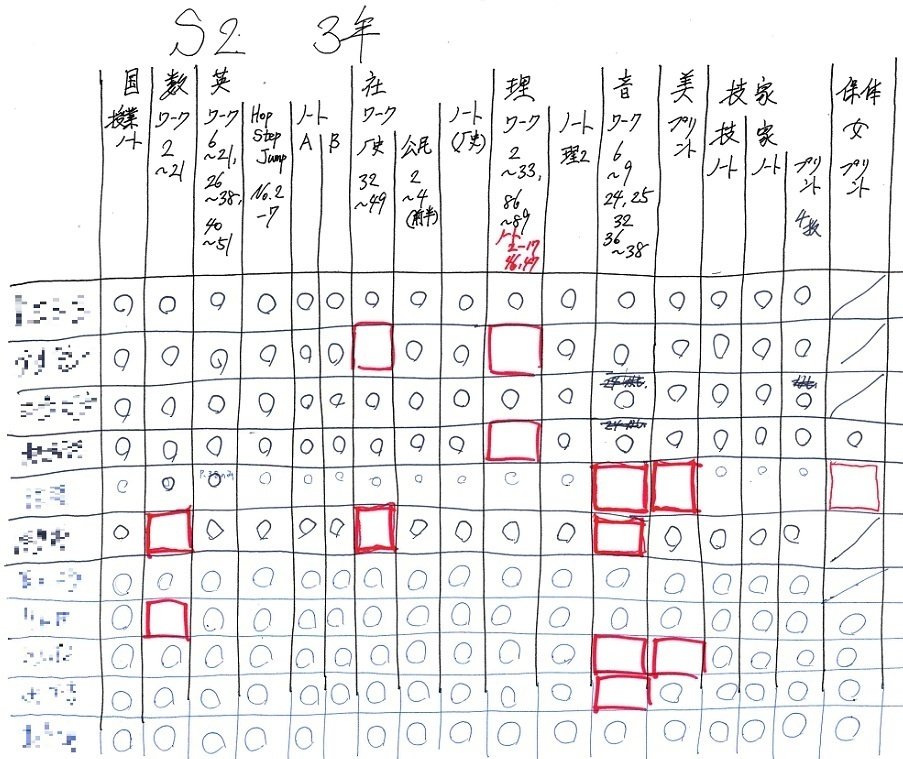 S2 3年
国 数 英 社 理 音 美 技家 保体
授業ノート
ワーク 2~21
ワーク 6~21, 26~38, 40~51
Hop Step Jump No.2-7
ノート A B
ワーク 歴史 32~49
公民 2~4 (前半)
ノート (歴史)
ワーク 2~33, 86~89
ノート 2-17 46,47
ノート 理2
ワーク 6~9 24,25 32 36~38
プリント
技 ノート
家 ノート
プリント 4枚
女 プリント